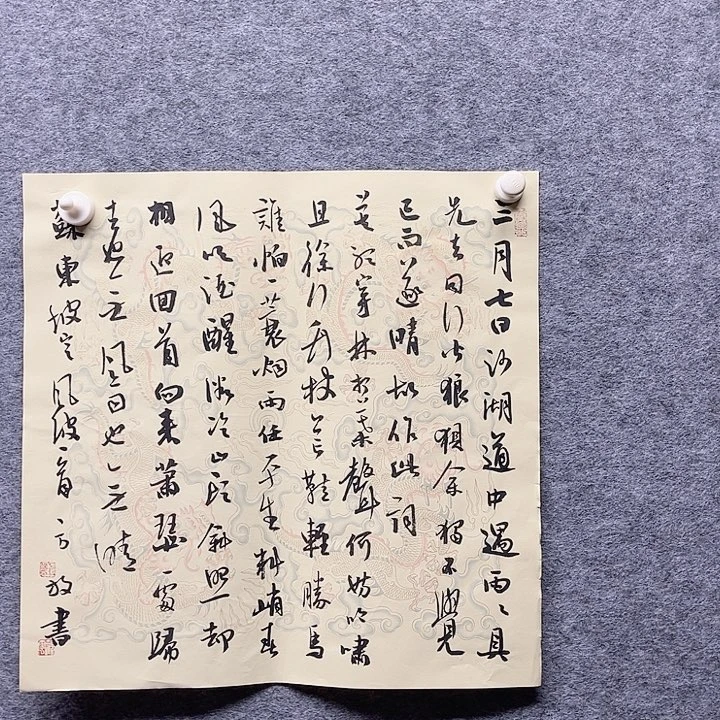 三月七日沙湖道中遇雨〻具
先去同行皆狼狽余獨不覺
已而遂晴故作此詞
莫聽穿林打葉聲何妨吟嘯
且徐行竹杖芒鞋輕勝馬
誰怕一蓑烟雨任平生料峭春
風吹酒醒微冷山頭斜照却
相迎回首向来蕭瑟處歸
去也无風雨也无晴
蘇東坡定風波一首方放書